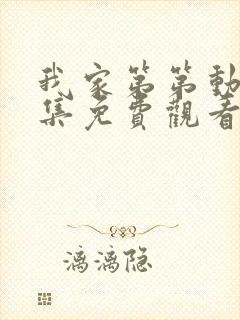 我家第第動
集免費觀看
漓漓隐